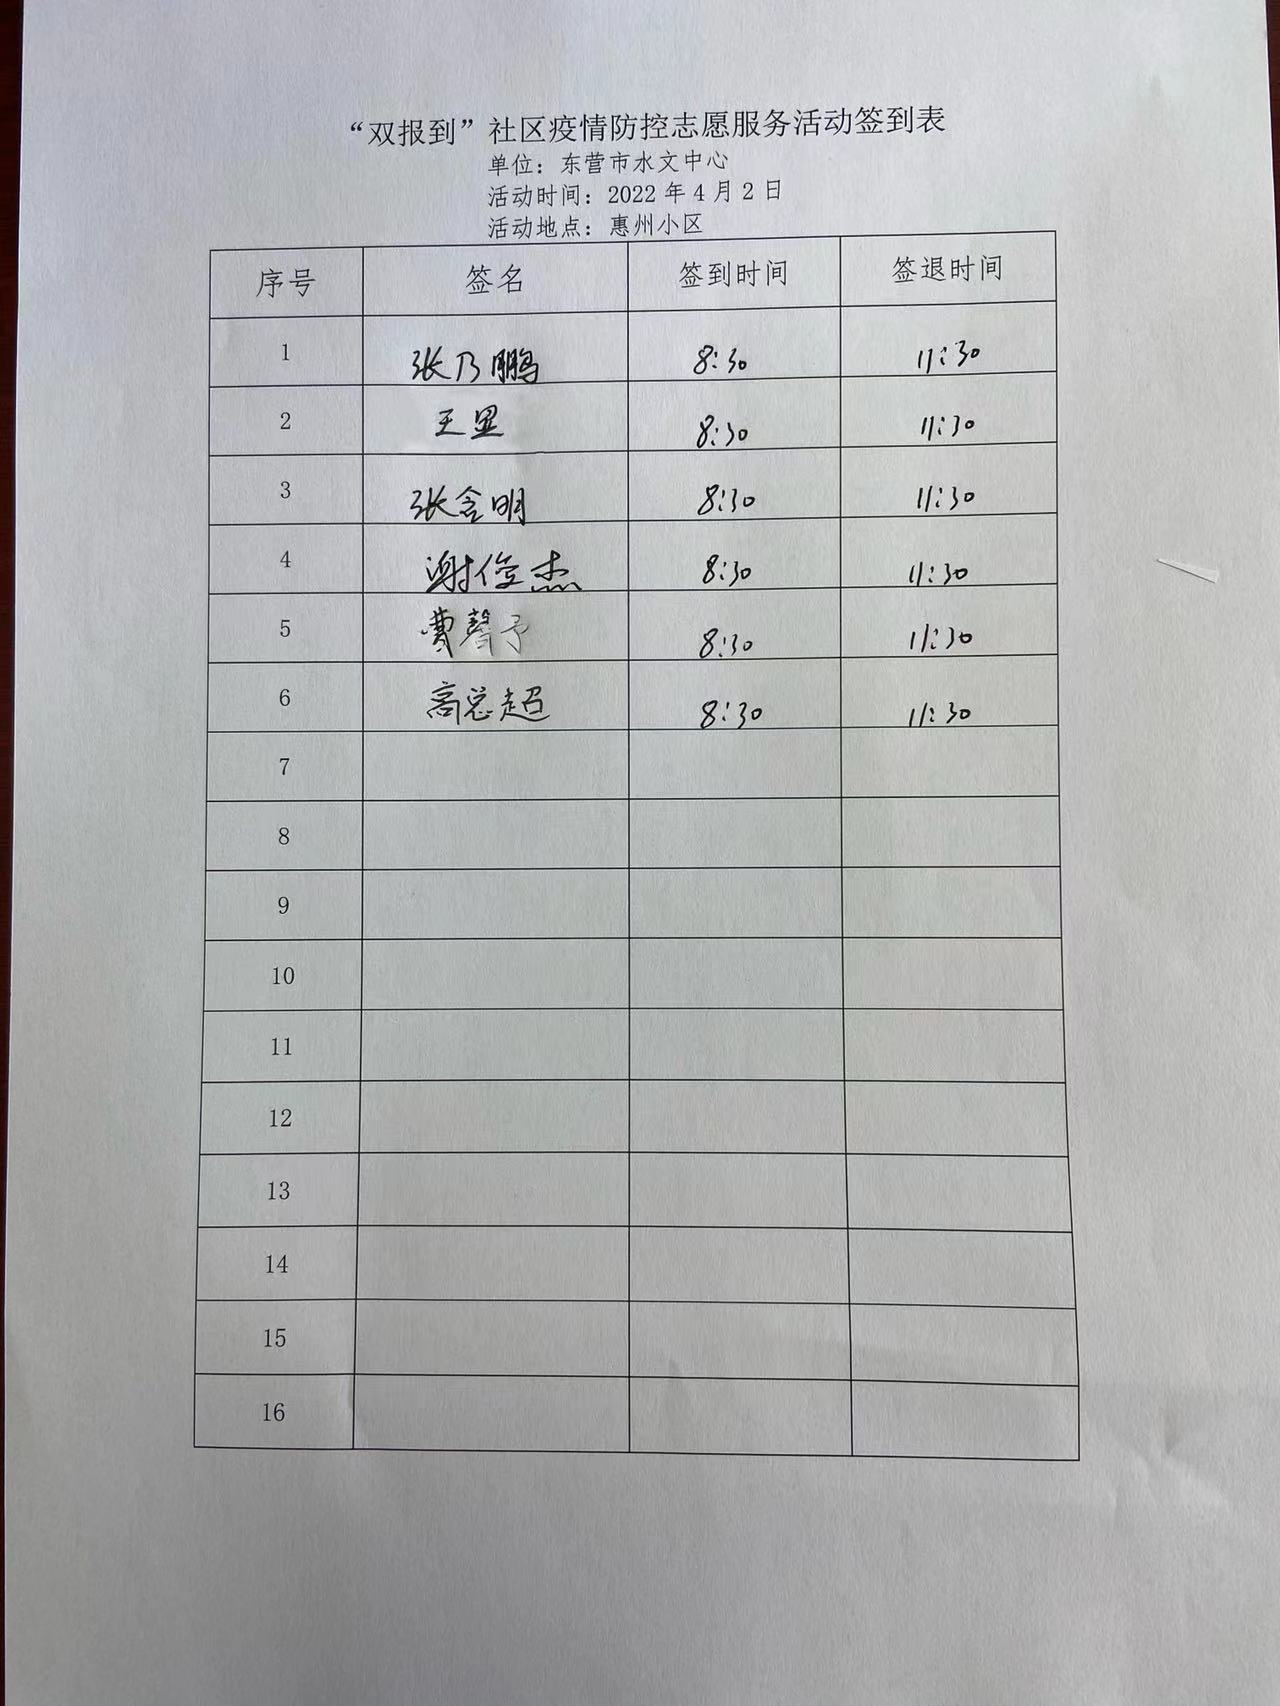 “双报到”社区疫情防控志愿服务活动签到表
单位：东营市水文中心
活动时间：2022年4月2日
活动地点：惠州小区
序号 签名 签到时间 签退时间
1 张乃鹏 8:30 11:30
2 王显 8:30 11:30
3 张含明 8:30 11:30
4 谢俊杰 8:30 11:30
5 曹馨予 8:30 11:30
6 高总超 8:30 11:30
7
8
9
10
11
12
13
14
15
16